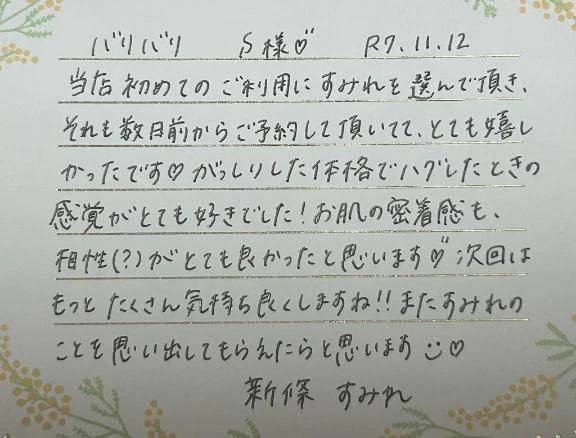 バリバリ S様♡ R7.11.12
当店初めてのご利用にすみれを選んで頂き、
それも数日前からご予約して頂いてて、とても嬉し
かったです♡ がっしりした体格でハグしたときの
感覚がとても好きでした！お肌の密着感も、
相性(?)がとても良かったと思います♡ 次回は
もっとたくさん気持ち良くしますね!! またすみれの
ことを思い出してもらえたらと思います☺♡
新條 すみれ